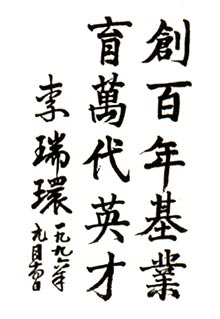 創百年基業
育萬代英才
李瑞環
一九九六年
九月十日